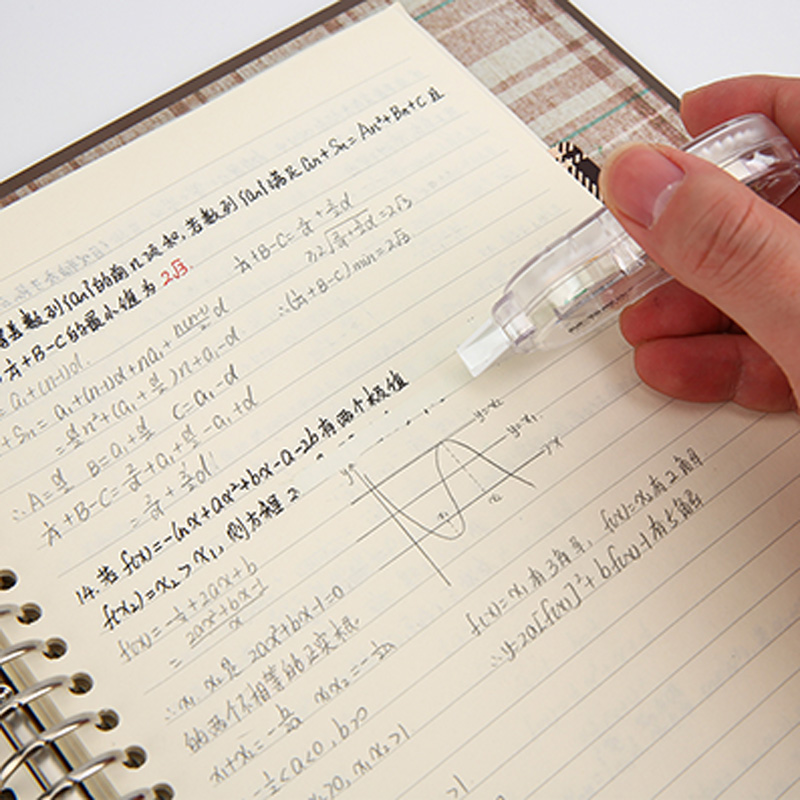 等差数列{an}的前n项和,若数列{an}满足an+Sn=An²+Bn+C且
+B-C的最小值为2√3.
=a1+(n-1)d.
+Sn=a1+(n-1)d+na1+n(n-1)/2 d
=d/2 n²+(a1+d/2)n+a1-d
∴A=d/2 B=a1+d/2 C=a1-d
1/A+B-C=2/d+a1+d/2-a1+d
=2/d+3/2 d
1/A+B-C=2/d+3/2 d
≥2√(2/d·3/2 d)=2√3
∴(1/A+B-C)min=2√3
14.若f(x)=-lnx+ax²+bx-a-2b有两个极值
f(x2)=x2>x1,则方程2
f(x)=-1/x+2ax+b
=(2ax²+bx-1)/x
∴x1,x2是2ax²+bx-1=0
的两个不相等的正实根.
x1+x2=-b/2a x1x2=-1/2a
b>0
x1x2>1
>1
y
y=x2
y=x1
x
x1
x2
f(x)=x1有3角星,f(x)=x2有2角星
∴y=2a[f(x)]²+bf(x)-1有5角星